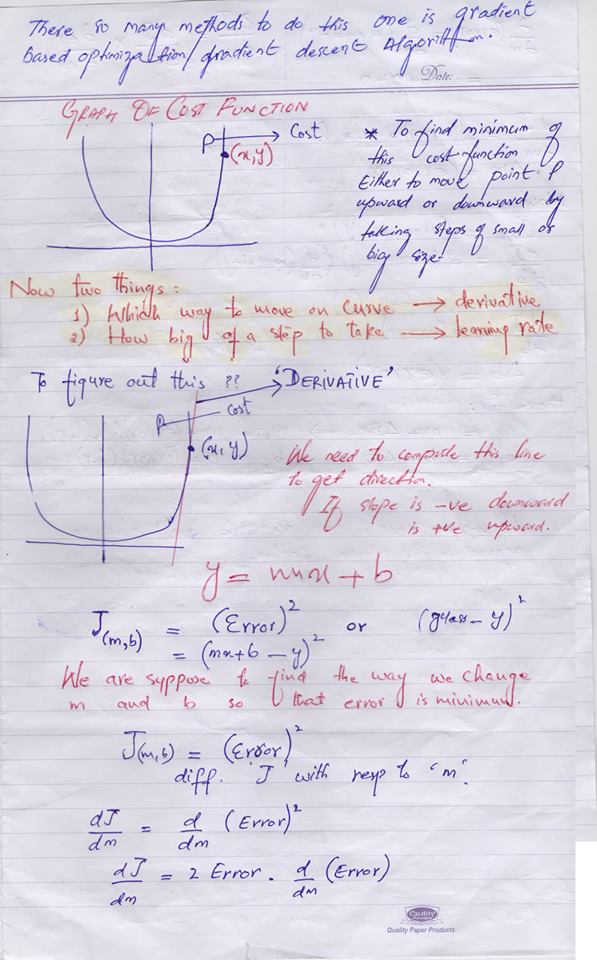 There so many methods to do this one is gradient
based optimization/gradient descent Algorithm.
Date:
GRAPH OF COST FUNCTION
P → Cost
(x,y)
* To find minimum of
this cost function
Either to move point P
upward or downward by
taking steps of small or
big size.
Now two things:
1) Which way to move on curve → derivative
2) How big of a step to take → learning rate
To figure out this ?? → 'DERIVATIVE'
P cost
(x,y)
We need to compute this line
to get direction.
If slope is -ve downward
is +ve upward.
y = mx + b
J(m,b) = (Error)² or (guess - y)²
= (mx+b - y)²
We are suppose to find the way we change
m and b so that error is minimum.
J(m,b) = (Error)²
diff. 'J' with resp to 'm'.
dJ/dm = d/dm (Error)²
dJ/dm = 2 Error . d/dm (Error)
Quality
Quality Paper Products